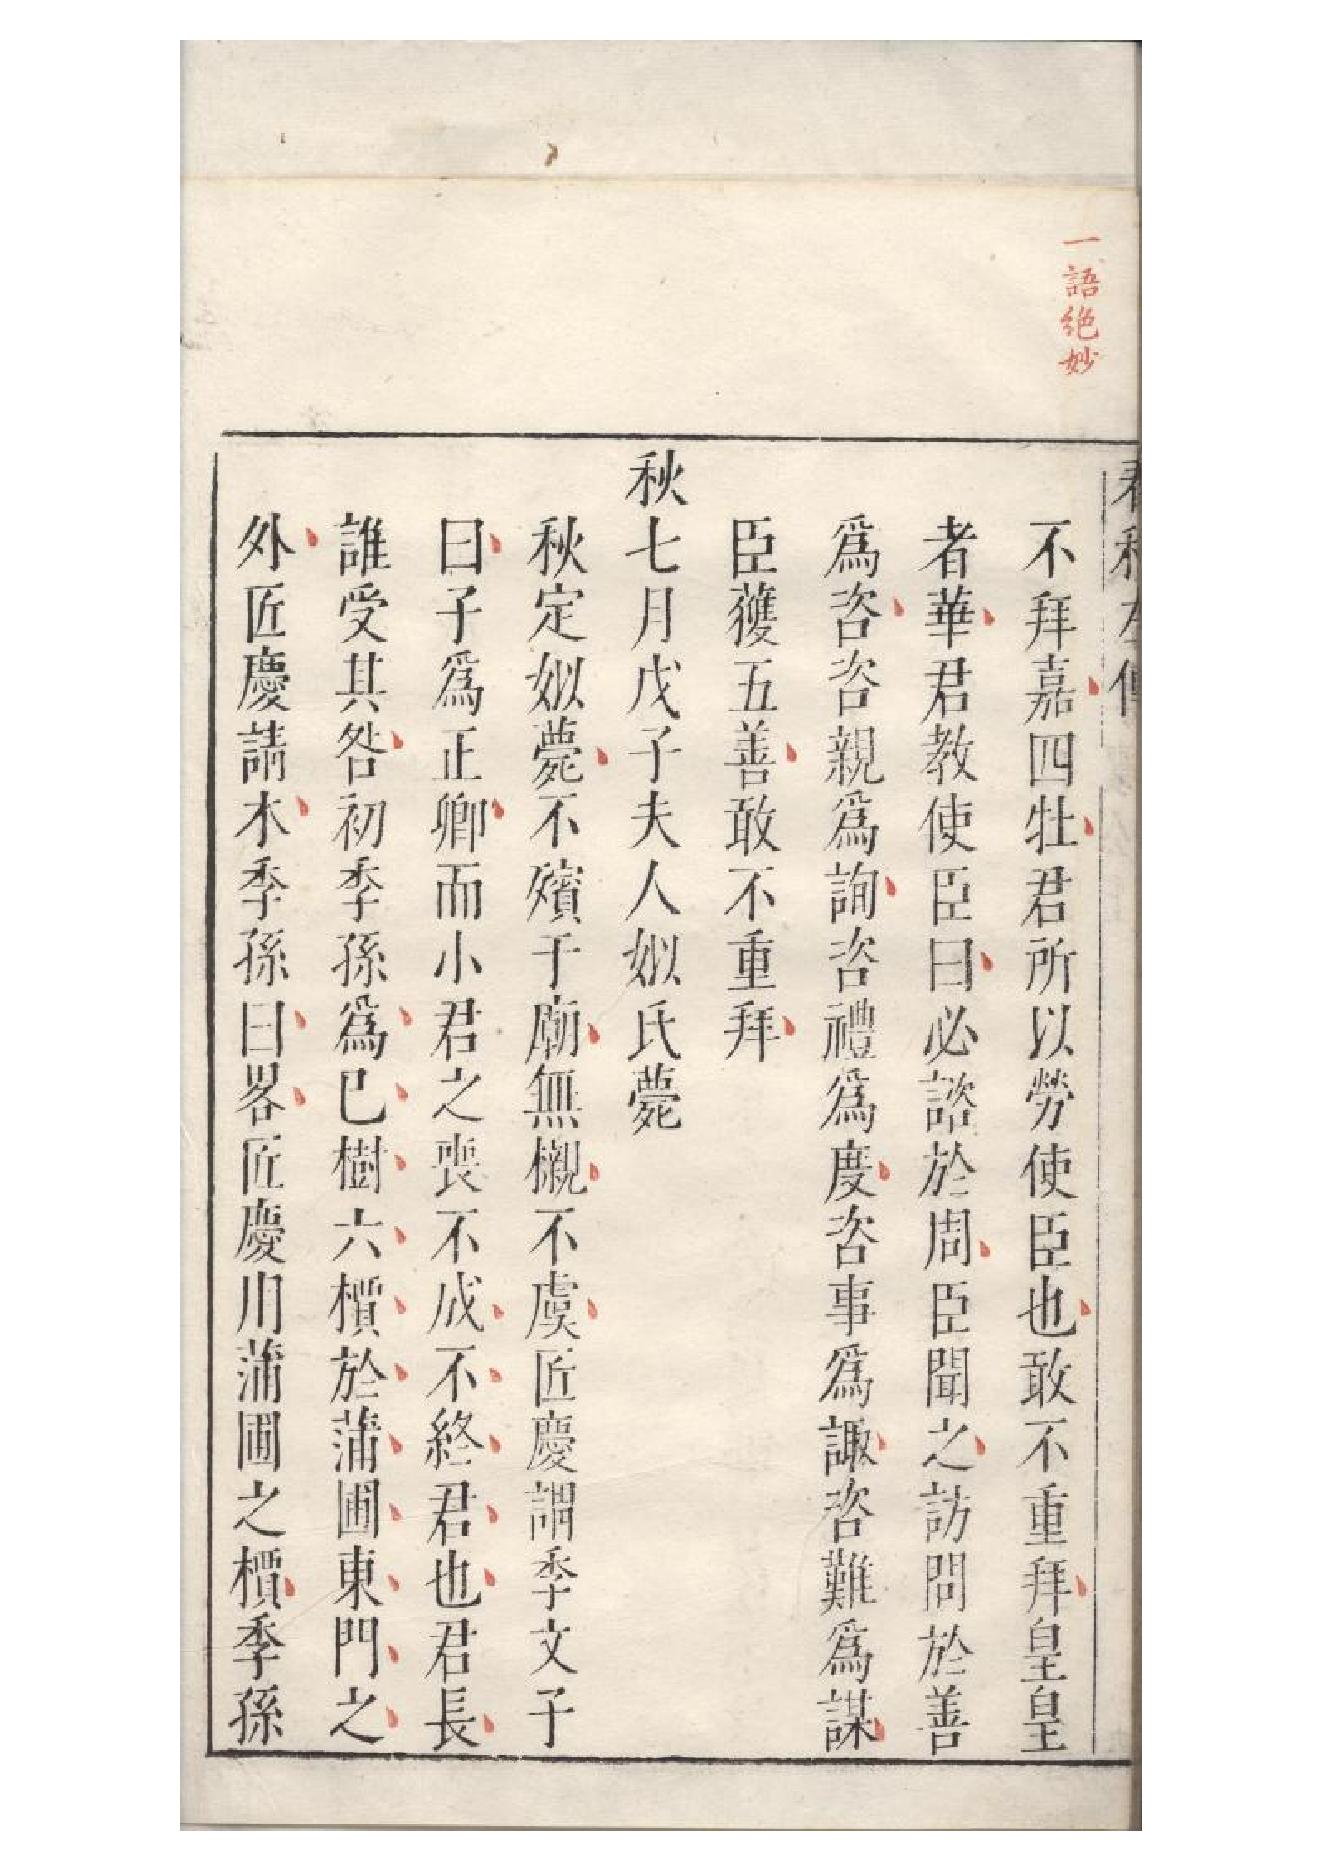 一語絶妙
春秋左傳
不拜嘉四牡君所以勞使臣也敢不重拜皇皇
者華君教使臣曰必諮於周臣聞之訪問於善
爲咨咨親爲詢咨禮爲度咨事爲諏咨難爲謀
臣獲五善敢不重拜
秋七月戊子夫人姒氏薨
秋定姒薨不殯于廟無櫬不虞匠慶謂季文子
曰子爲正卿而小君之喪不成不終君也君長
誰受其咎初季孫爲已樹六檟於蒲圃東門之
外匠慶請木季孫曰畧匠慶用蒲圃之檟季孫